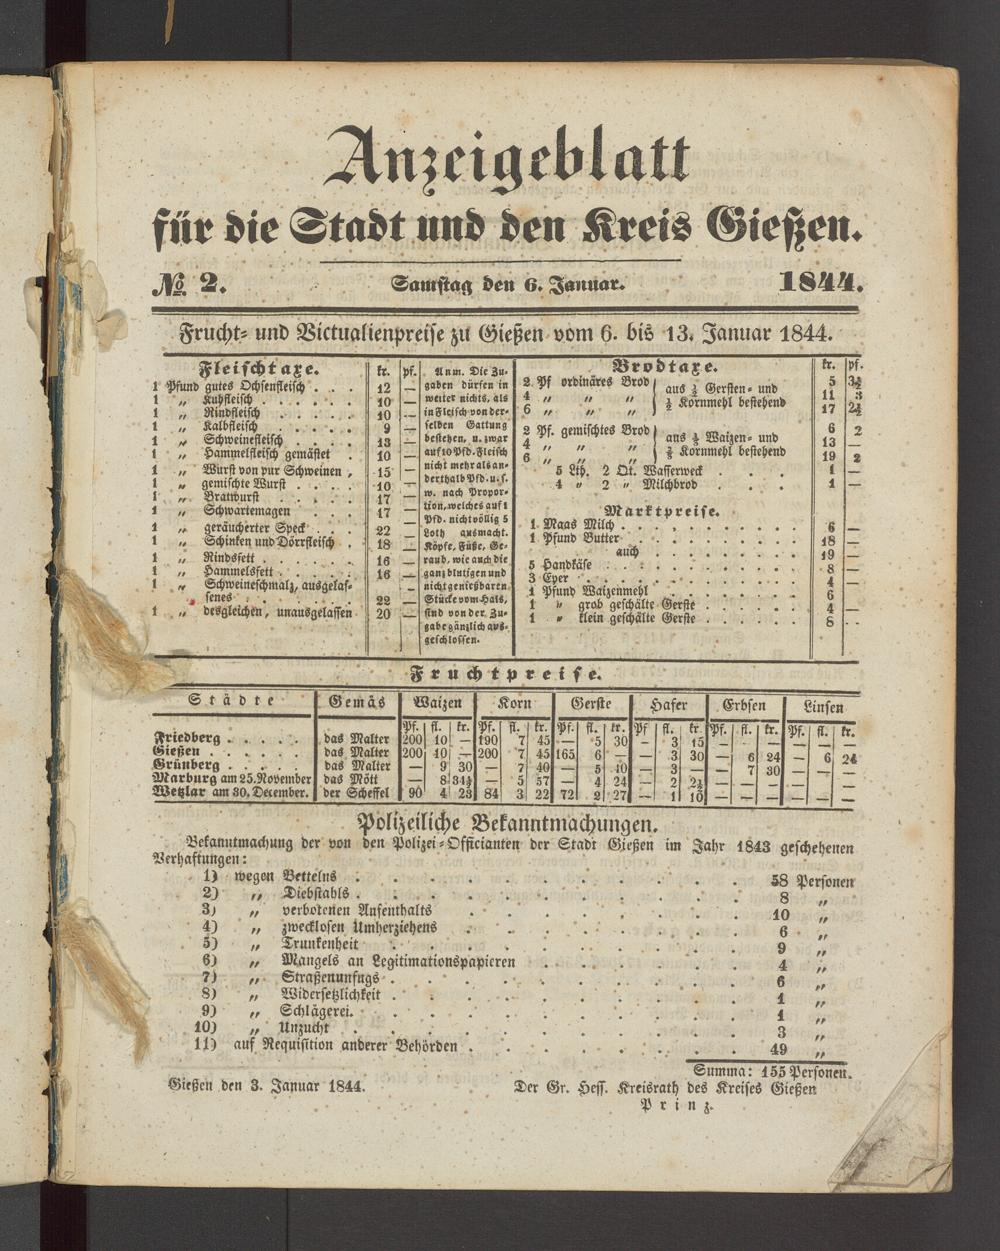 Anzeigeblatt
für die Stadt und den Kreis Gießen.
№ 2. Samstag den 6. Januar. 1844.
Frucht- und Victualienpreise zu Gießen vom 6. bis 13. Januar 1844.
Fleischtaxe. kr. pf.
1 Pfund gutes Ochsenfleisch . . . 12 —
1 „ Kuhfleisch . . . . 10 —
1 „ Rindfleisch . . . . 10 —
1 „ Kalbfleisch . . . . 9 —
1 „ Schweinefleisch . . . . 13 —
1 „ Hammelfleisch gemästet . 10 —
1 „ Wurst von pur Schweinen , 15 —
1 „ gemischte Wurst . . . . 10 —
1 „ Bratwurst . . . . 17 —
1 „ Schwartemagen . . . . 17 —
1 „ geräucherter Speck . . . 22 —
1 „ Schinken und Dörrfleisch . 18 —
1 „ Rindsfett . . . . 16 —
1 „ Hammelsfett . . . . 16 —
1 „ Schweineschmalz, ausgelas-
senes . . . . 22 —
1 „ desgleichen, unausgelassen 20 —
Anm. Die Zu-
gaben dürfen in
weiter nichts, als
in Fleisch von der-
selben Gattung
bestehen, u. zwar
auf 10 Pfd. Fleisch
nicht mehr als an-
derthalb Pfd. u. s.
w. nach Propor-
tion, welches auf 1
Pfd. nicht völlig 5
Loth ausmacht.
Köpfe, Füße, Ge-
raub, wie auch die
ganz blutigen und
nicht genießbaren
Stücke vom Hals,
sind von der Zu-
gabe gänzlich aus-
geschlossen.
Brodtaxe. kr. pf.
2 Pf ordinäres Brod 5 3½
4 „ „ „ aus ½ Gersten- und 11 3
6 „ „ „ ½ Kornmehl bestehend 17 2½
2 Pf. gemischtes Brod 6 2
4 „ „ „ aus ⅓ Waizen- und 13 —
6 „ „ „ ⅔ Kornmehl bestehend 19 2
5 Lth. 2 Qt. Wasserweck . . . 1 —
4 „ 2 „ Milchbrod . . . 1 —
Marktpreise.
1 Maas Milch . . . . . . . 6 —
1 Pfund Butter . . . . . . . 18 —
auch . . . . . . 19 —
5 Handkäse . . . . . . . 8 —
3 Eyer . . . . . . . . 4 —
1 Pfund Waizenmehl . . . . . . 6
1 „ grob geschälte Gerste . . . . . 4 —
1 „ klein geschälte Gerste . . . . . 8
Fruchtpreise.
Städte Gemäs Waizen Korn Gerste Hafer Erbsen Linsen
Pf. fl. kr. Pf. fl. kr. Pf. fl. kr. Pf fl. kr. Pf. fl. kr. Pf. fl. kr.
Friedberg . . . . . das Malter 200 10 — 190 7 45 — 5 30 — 3 15 — — — —
Gießen . . . . . das Malter 200 10 — 200 7 45 165 6 — — 3 30 — 6 24 — 6 24
Grünberg . . . . . das Malter — 9 30 — 7 40 — 5 10 — 3 — — 7 30 — — —
Marburg am 25. November das Mött — 8 31½ — 5 57 — 4 24 — 2 2½ — — — — — —
Wetzlar am 30. December. der Scheffel 90 4 23 84 3 22 72 2 27 — 1 10 — — — — — —
Polizeiliche Bekanntmachungen.
Bekanntmachung der von den Polizei-Officianten der Stadt Gießen im Jahr 1843 geschehenen
Verhaftungen:
1) wegen Bettelns . . . . . . . 58 Personen
2) „ Diebstahls . . . . . . . 8 „
3) „ verbotenen Aufenthalts . . . . . 10 „
4) „ zwecklosen Umherziehens . . . . . 6 „
5) „ Trunkenheit . . . . . . . 9 „
6) „ Mangels an Legitimationspapieren . . . . 4 „
7) „ Straßenunfugs . . . . . . . 6 „
8) „ Widersetzlichkeit . . . . . . . 1 „
9) „ Schlägerei. . . . . . . . 1 „
10) „ Unzucht . . . . . . . . 3 „
11) auf Requisition anderer Behörden . . . . . 49 „
Summa: 155 Personen.
Gießen den 3. Januar 1844. Der Gr. Hess. Kreisrath des Kreises Gießen
Prinz.